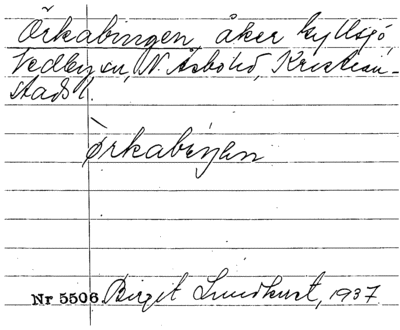 Örkabingen, åker Hyllsjö,
Vedby sn, N. Åsbo hd, Kristian-
stads l.
Ørkabiŋen
Nr 5506. Birgit Lundkvist, 1937